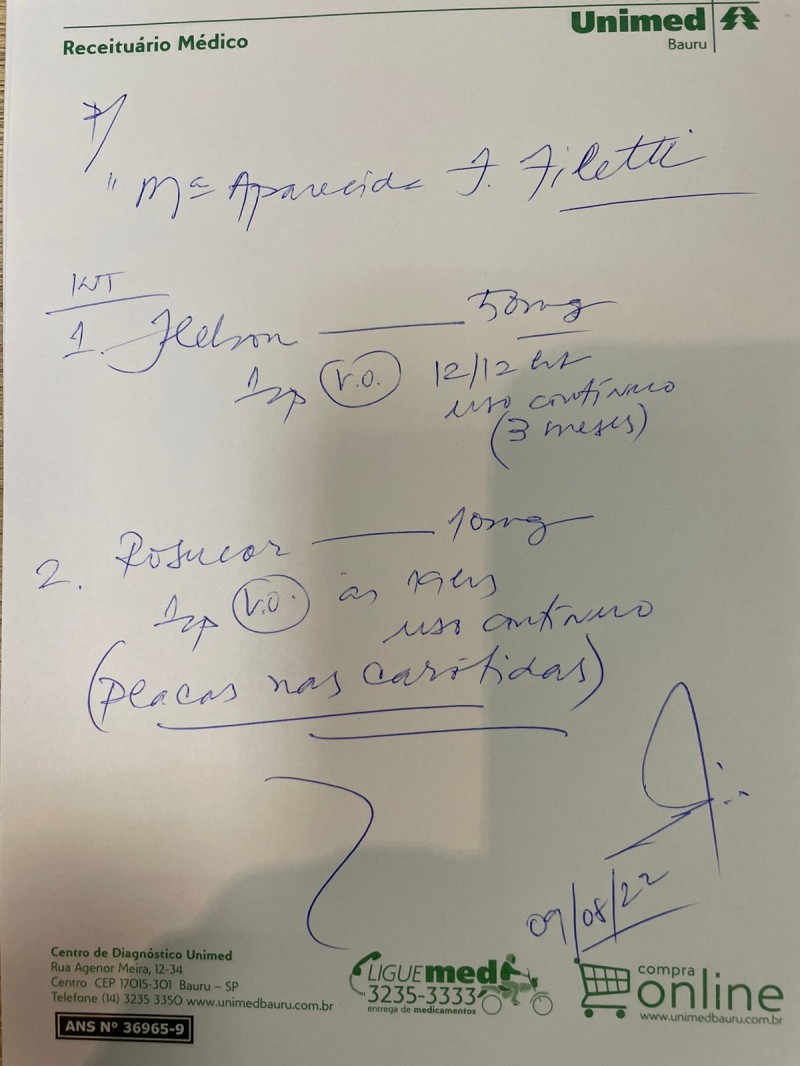 Unimed
Bauru
Receituário Médico
P/
" Mª Aparecida F. Filetti
INT
1. Flebon 50mg
1cp V.O. 12/12 hs
uso contínuo
(3 meses)
2. Rosucor 10mg
1cp V.O. às 19hs
uso contínuo
(placas nas carótidas)
09/08/22
Centro de Diagnóstico Unimed
Rua Agenor Meira, 12-34
Centro CEP 17015-301 Bauru – SP
Telefone (14) 3235 3350 www.unimedbauru.com.br
ANS Nº 36965-9
LIGUEmed
3235-3333
entrega de medicamentos
compra
online
www.unimedbauru.com.br